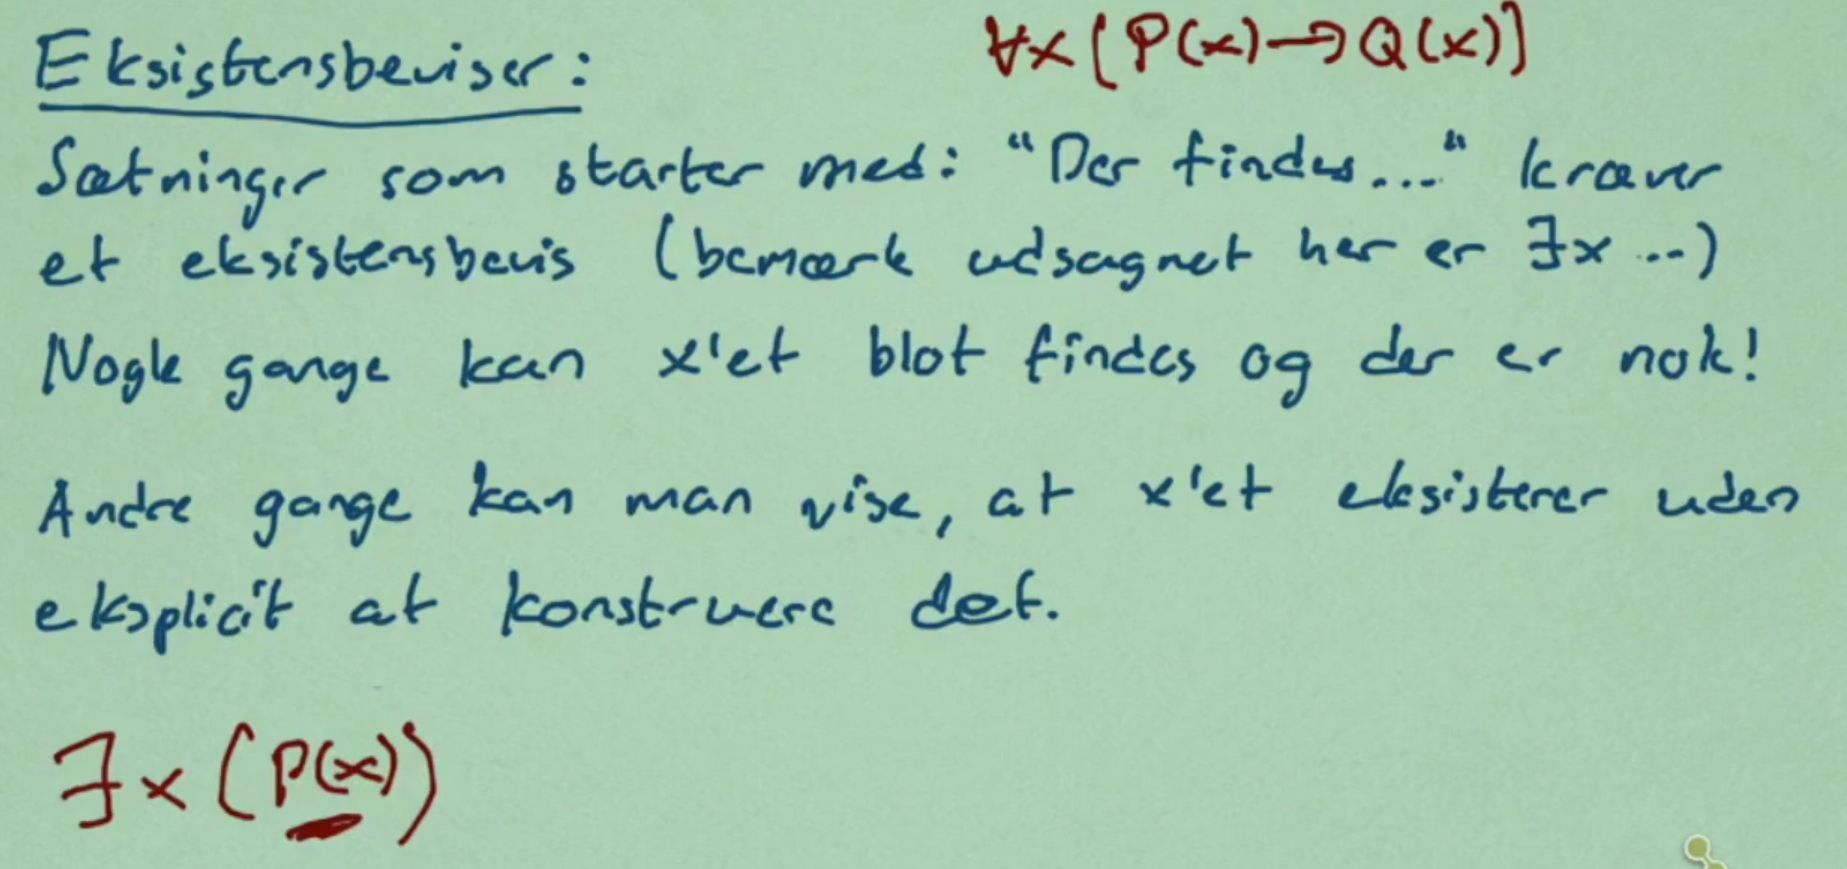 Eksistensbeviser:
∀x(P(x)→Q(x))
Sætninger som starter med: "Der findes..." kræver
et eksistensbevis (bemærk udsagnet her er ∃x ...)
Nogle gange kan x'et blot findes og der er nok!
Andre gange kan man vise, at x'et eksisterer uden
eksplicit at konstruere det.
∃x(P(x))